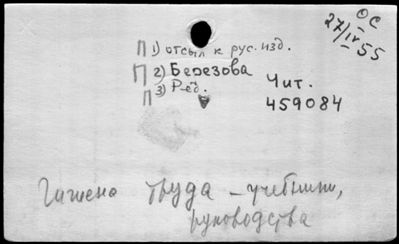 ОС
27/IV 55
П 1) отсыл к рус. изд.
П 2) Березова
П 3) Ред.
Чит.
459084
Гигиена труда – учебники,
руководства